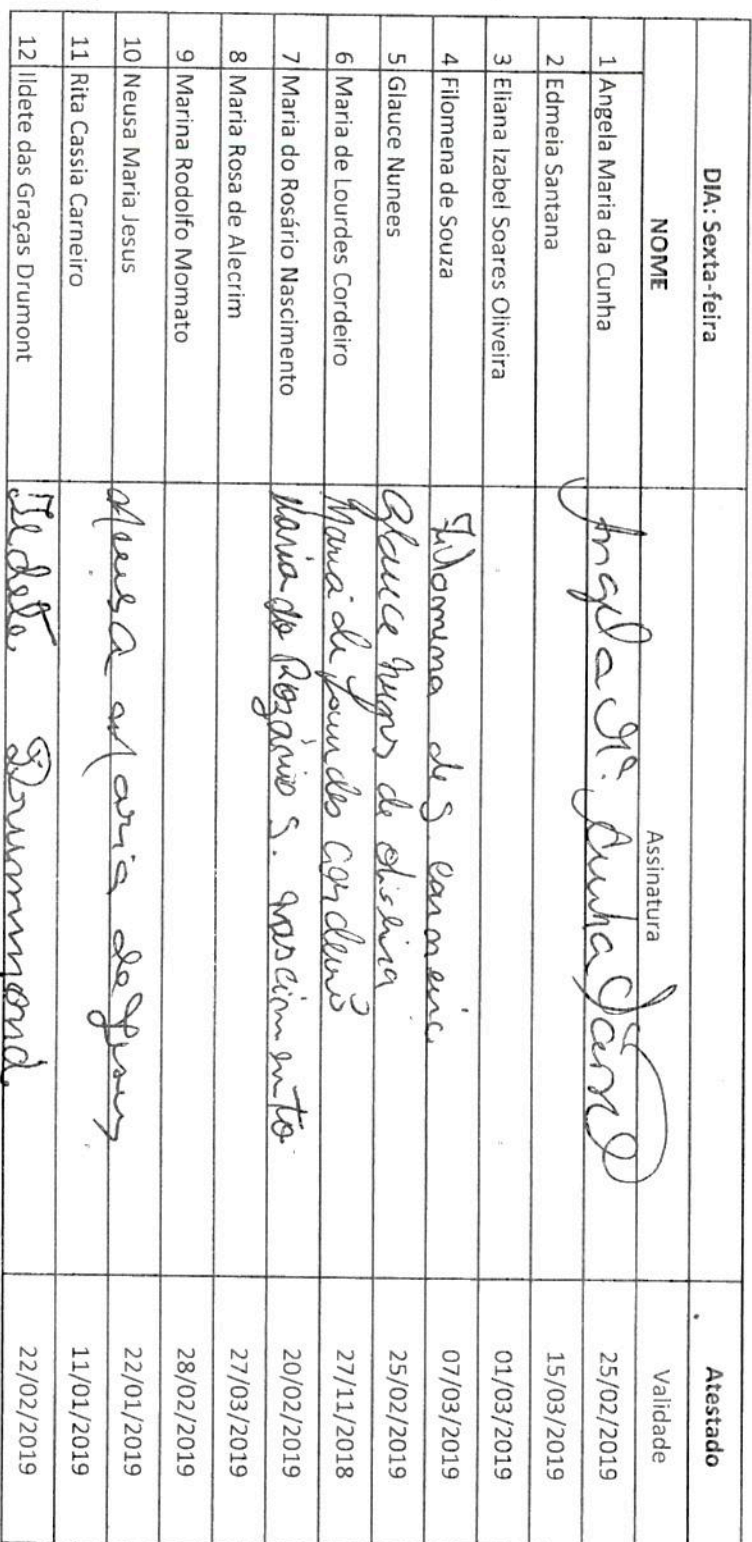 DIA: Sexta-feira Atestado
NOME Assinatura Validade
1 Angela Maria da Cunha Angela Mª. Cunha 25/02/2019
2 Edmeia Santana 15/03/2019
3 Eliana Izabel Soares Oliveira 01/03/2019
4 Filomena de Souza Filomena de S Carneiro 07/03/2019
5 Glauce Nunees Glauce Nunes de Oliveira 25/02/2019
6 Maria de Lourdes Cordeiro Maria de Lourdes Cordeiro 27/11/2018
7 Maria do Rosário Nascimento Maria do Rosário S. Nascimento 20/02/2019
8 Maria Rosa de Alecrim 27/03/2019
9 Marina Rodolfo Momato 28/02/2019
10 Neusa Maria Jesus Neusa Maria de Jesus 22/01/2019
11 Rita Cassia Carneiro 11/01/2019
12 Ildete das Graças Drumont Ildete Drummond 22/02/2019